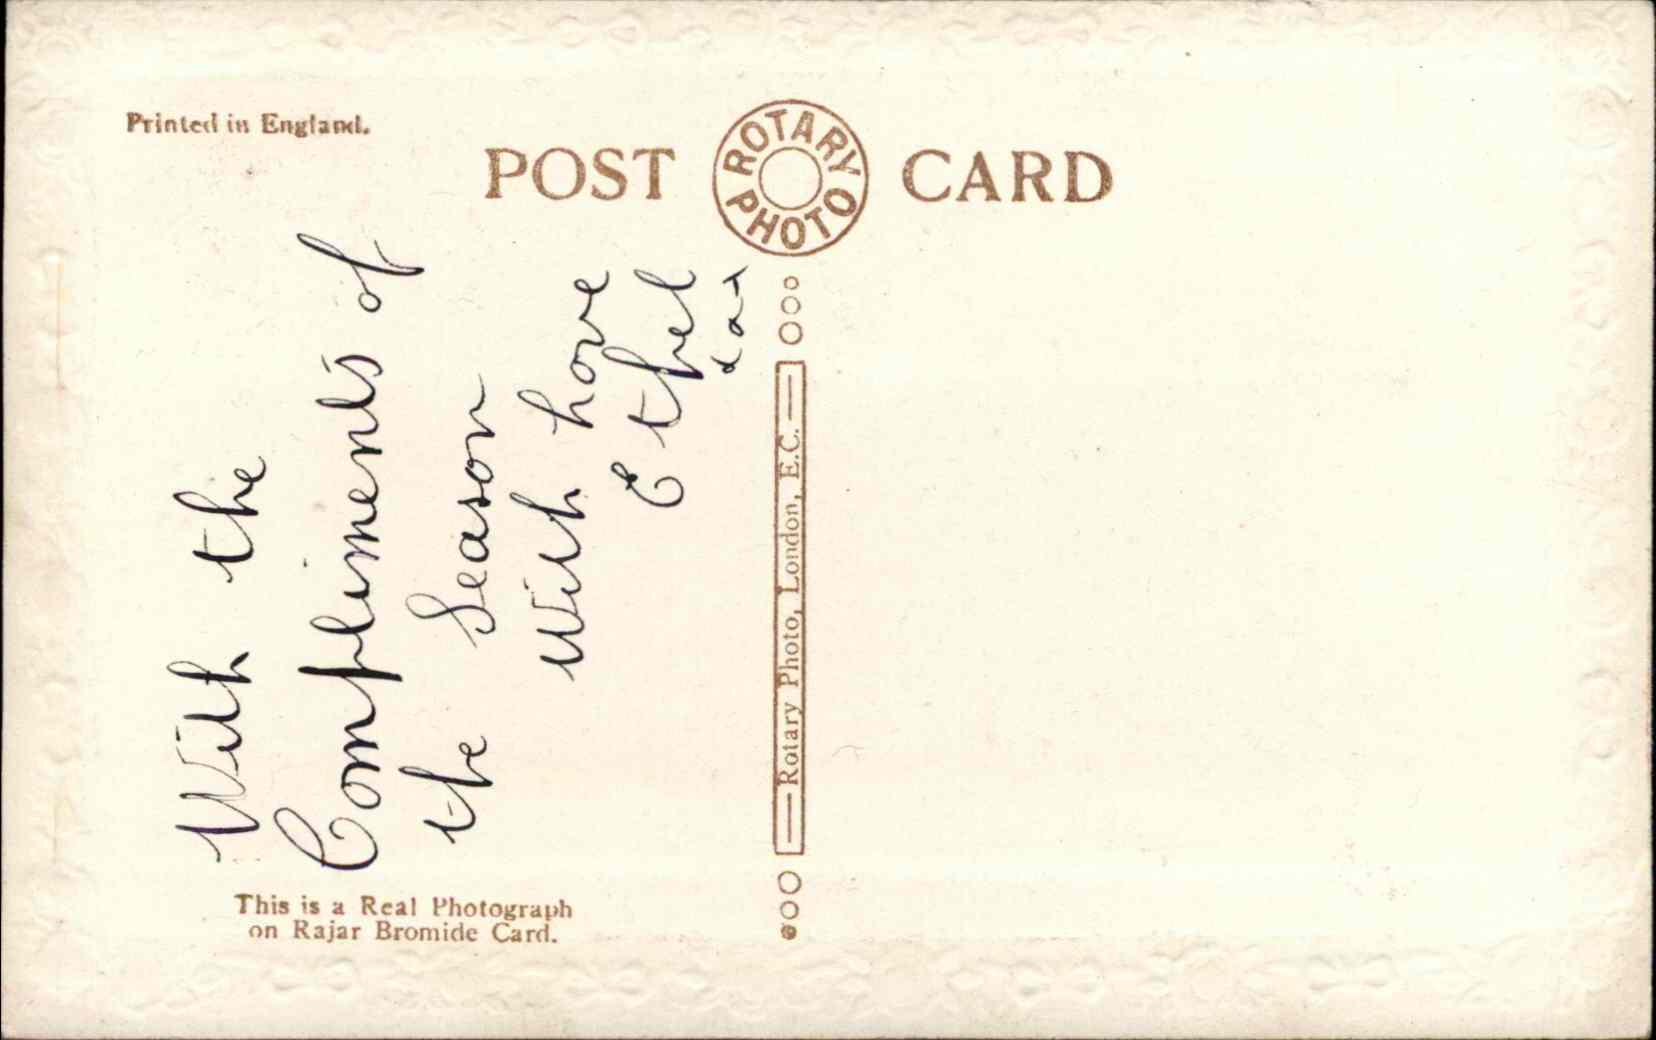 Printed in England.
POST CARD
ROTARY PHOTO
With the
Compliments of
the Season
With love
Ethel
Rotary Photo, London, E.C.
This is a Real Photograph
on Rajar Bromide Card.